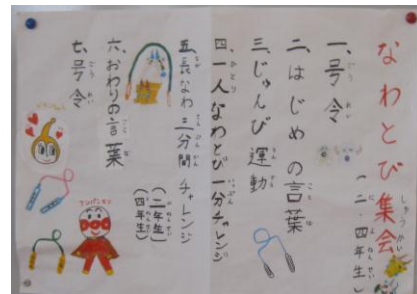 なわとび集会
(二・四年生)
一、号令
二、はじめの言葉
三、じゅんび運動
四、一人なわとび一分チャレンジ
五、長なわ三分間チャレンジ
(二年生)
(四年生)
六、おわりの言葉
七、号令